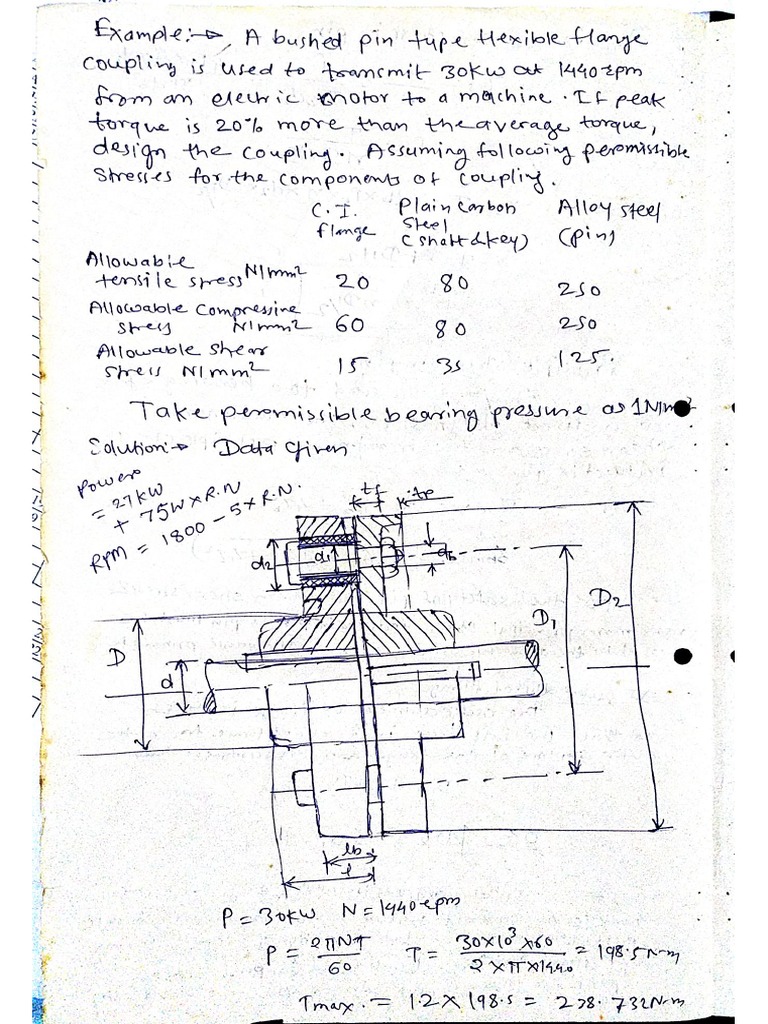 Example:→ A bushed pin type flexible flange
coupling is used to transmit 30kW at 1440rpm
from an electric motor to a machine. If peak
torque is 20% more than the average torque,
design the coupling. Assuming following permissible
stresses for the components of coupling.
C.I. Plain carbon Alloy steel
flange steel (pin)
(shaft & key)
Allowable
tensile stress N/mm² 20 80 250
Allowable compressive
stress N/mm² 60 80 250
Allowable shear
stress N/mm² 15 35 125.
Take permissible bearing pressure as 1N/mm²
Solution:→ Data given
Power
= 27kW
+ 75W x R.N
RPM = 1800 - 5 x R.N.
tf tp
d2 d1 db
D1 D2
D
d
lb
l
P = 30kW N = 1440rpm
P = 2πNT/60 T = 30x10³x60/2xπx1440 = 198.5 N-m
Tmax. = 1.2 x 198.5 = 238.732 N-m